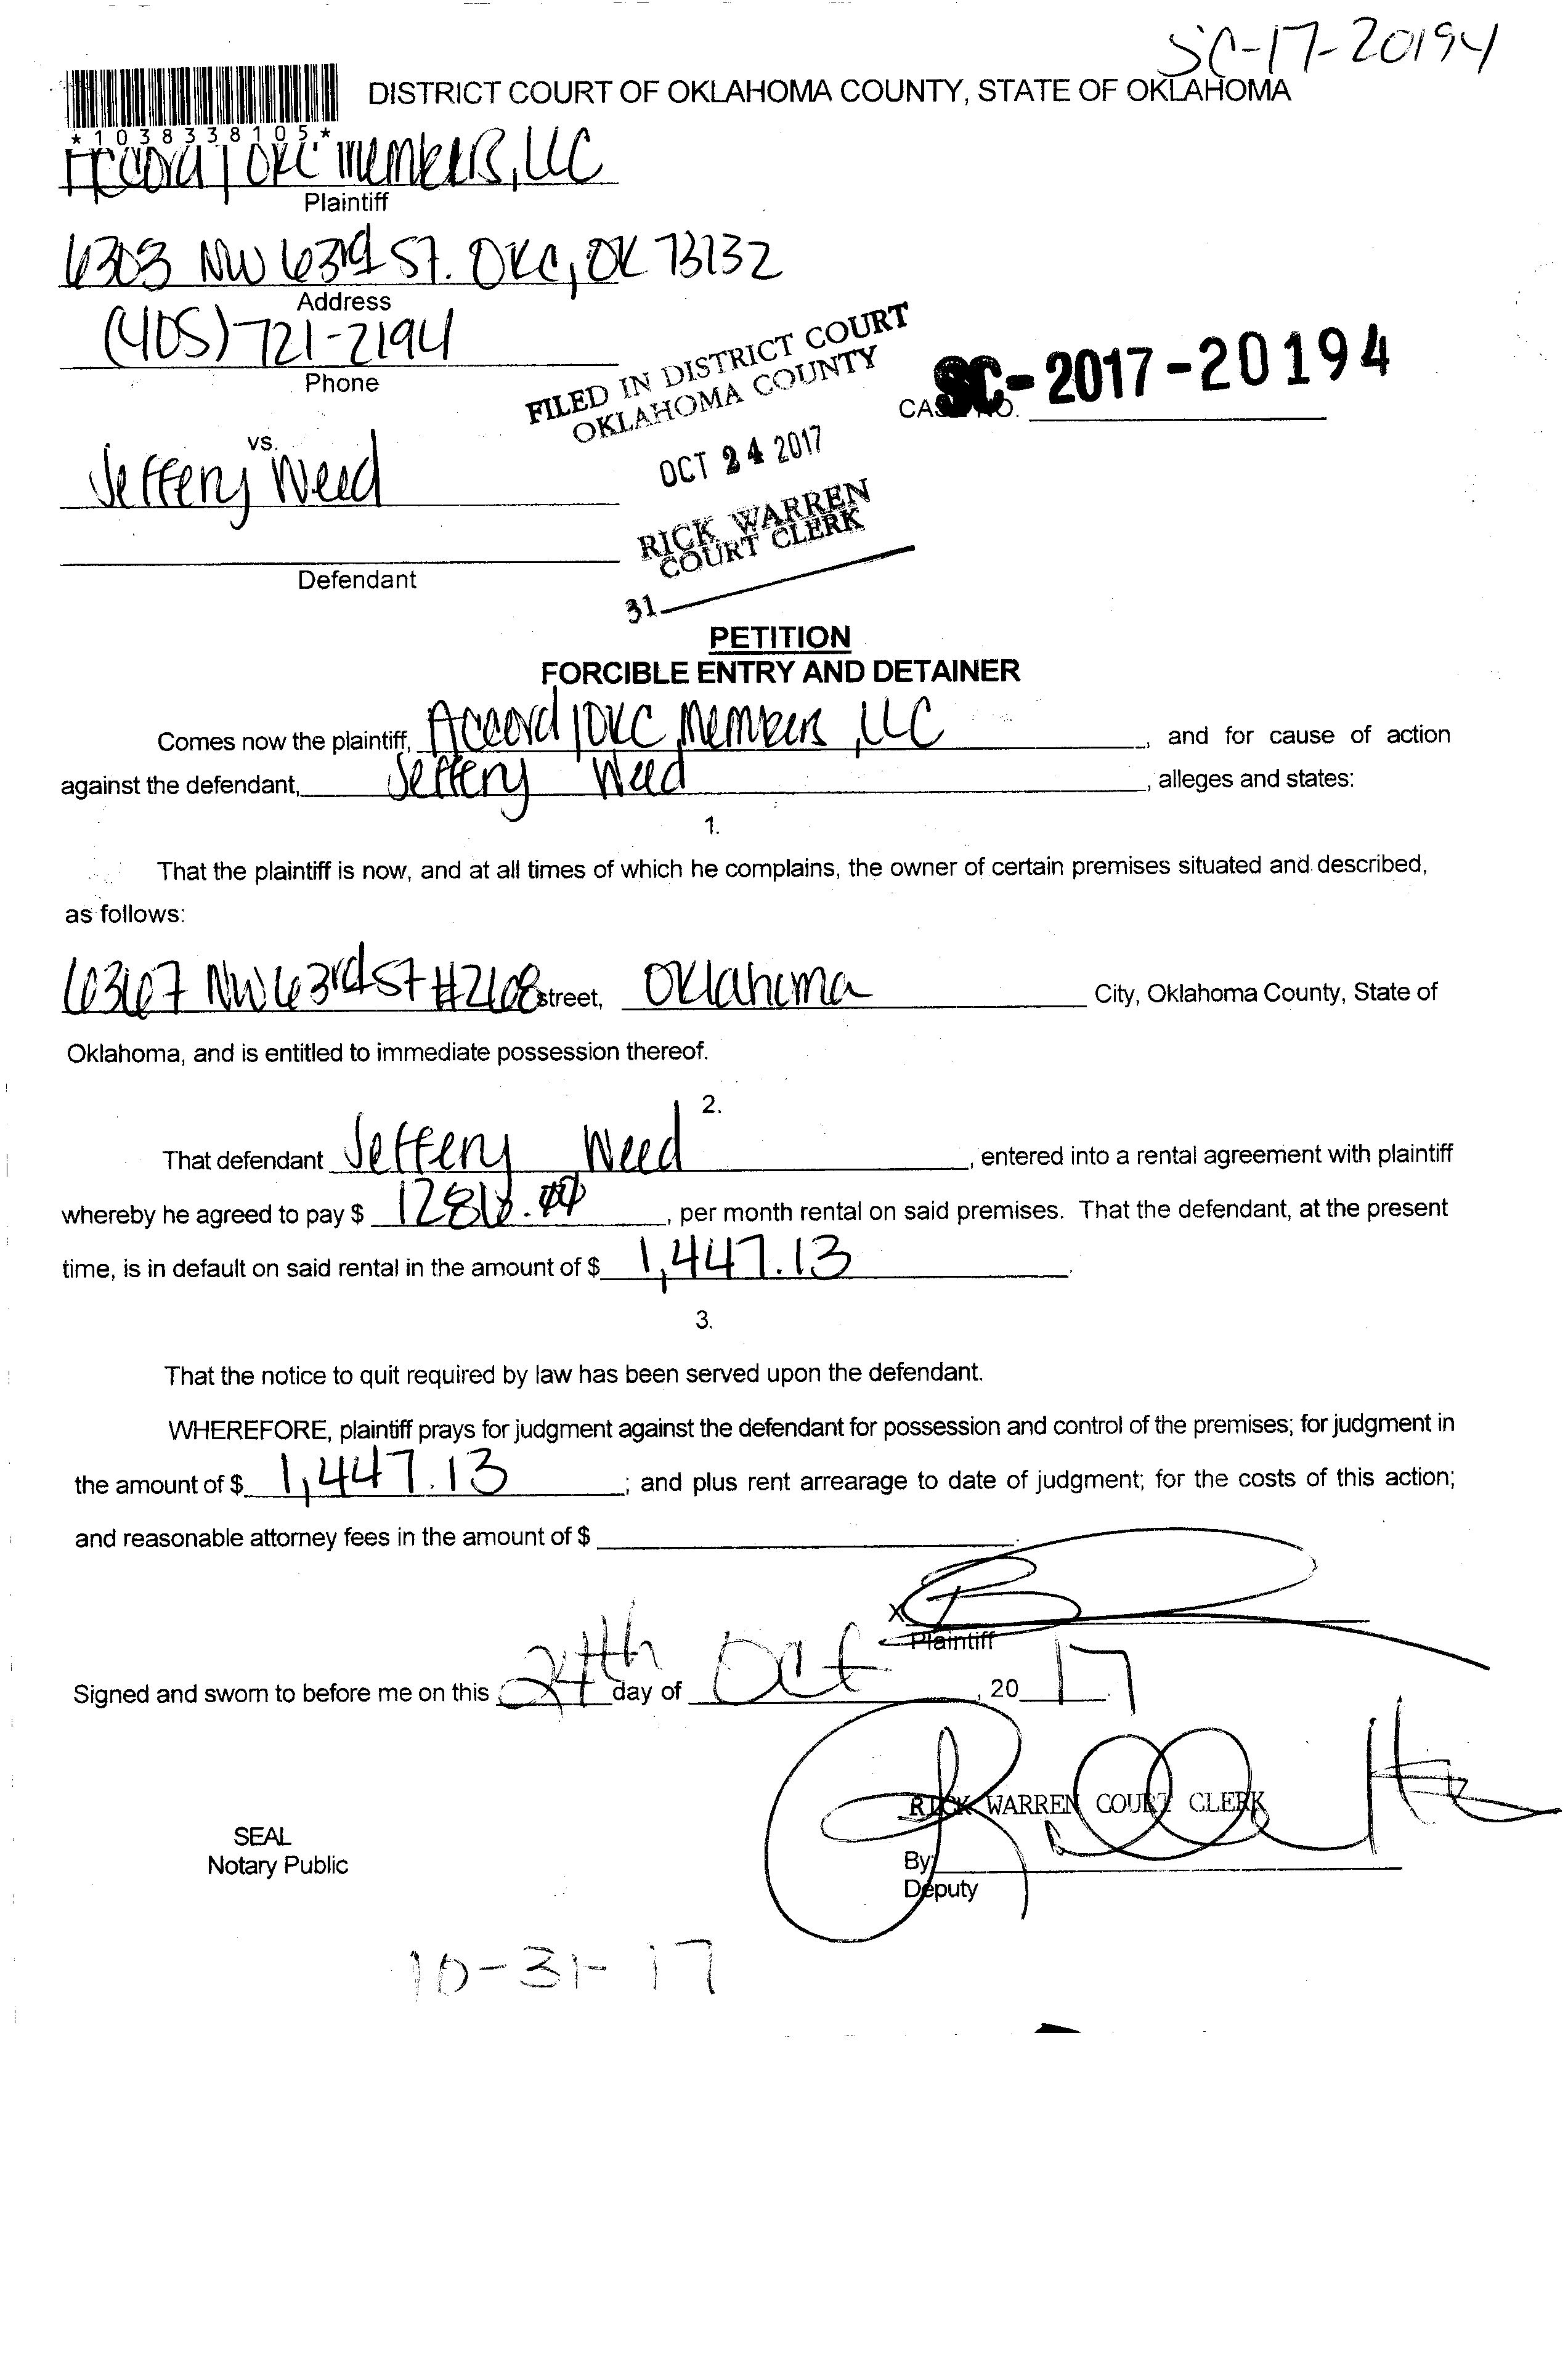 SC-17-20194
DISTRICT COURT OF OKLAHOMA COUNTY, STATE OF OKLAHOMA
*1038338105.*
Accord / OKC Members, LLC
Plaintiff
6303 NW 63rd St. OKC, OK 73132
Address
(405) 721-2194
Phone
FILED IN DISTRICT COURT
OKLAHOMA COUNTY
SC-2017-20194
CASE NO.
vs.
OCT 24 2017
Jeffery Weed
RICK WARREN
COURT CLERK
Defendant
31
PETITION
FORCIBLE ENTRY AND DETAINER
Comes now the plaintiff, Accord / OKC Members, LLC, and for cause of action
against the defendant, Jeffery Weed, alleges and states:
1.
That the plaintiff is now, and at all times of which he complains, the owner of certain premises situated and described,
as follows:
6367 NW 63rd St #268 street, Oklahoma City, Oklahoma County, State of
Oklahoma, and is entitled to immediate possession thereof.
2.
That defendant Jeffery Weed, entered into a rental agreement with plaintiff
whereby he agreed to pay $ 1286.00, per month rental on said premises. That the defendant, at the present
time, is in default on said rental in the amount of $ 1,447.13.
3.
That the notice to quit required by law has been served upon the defendant.
WHEREFORE, plaintiff prays for judgment against the defendant for possession and control of the premises; for judgment in
the amount of $ 1,447.13; and plus rent arrearage to date of judgment; for the costs of this action;
and reasonable attorney fees in the amount of $
X
Plaintiff
Signed and sworn to before me on this 24th day of Oct, 20 17
RICK WARREN COURT CLERK
SEAL
Notary Public
By
Deputy
10-31-17